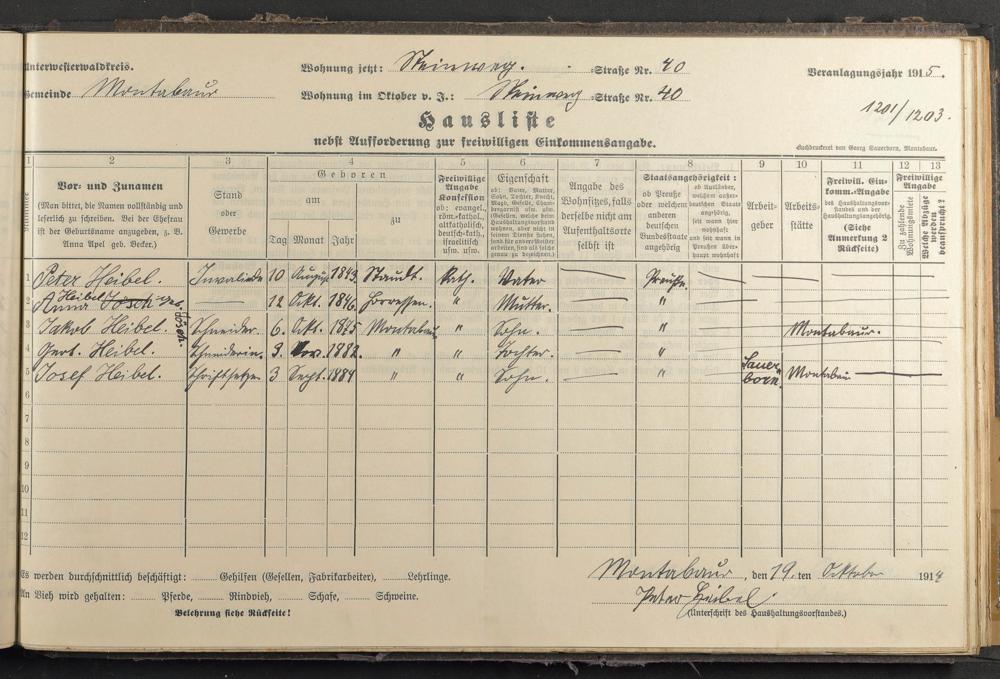 Unterwesterwaldkreis.
Wohnung jetzt: Steinweg. Straße Nr. 40
Veranlagungsjahr 1915.
Gemeinde Montabaur
Wohnung im Oktober v. J.: Steinweg Straße Nr. 40
1201/1203.
Hausliste
nebst Aufforderung zur freiwilligen Einkommensangabe.
Buchdruckerei von Georg Sauerborn, Montabaur.
1 2 3 4 5 6 7 8 9 10 11 12 13
Vor- und Zunamen
(Man bittet, die Namen vollständig und
leserlich zu schreiben. Bei der Ehefrau
ist der Geburtsname anzugeben, z. B.
Anna Apel geb. Becker.)
Stand
oder
Gewerbe
Geboren
am
zu
Tag Monat Jahr
Freiwillige
Angabe
Konfession
ob: evangel.,
röm.-kathol.,
altkatholisch,
deutsch-kath.,
israelitisch
usw. usw.
Eigenschaft
ob: Vater, Mutter,
Sohn, Tochter, Knecht,
Magd, Geselle, Cham-
bregarnist usw. usw.
(Gesellen, welche beim
Haushaltungsvorstand
wohnen, aber nicht in
seinem Dienste stehen,
sind für andere Meister
arbeitend, sind als solche
genau zu bezeichnen.)
Angabe des
Wohnsitzes, falls
derselbe nicht am
Aufenthaltsorte
selbst ist
Staatsangehörigkeit:
ob Preuße
oder welchem
anderen
deutschen
Bundesstaate
angehörig
ob Ausländer,
welchem außer-
deutschen Staate
angehörig,
seit wann hier
wohnhaft
und seit wann in
Preußen über-
haupt wohnhaft
Arbeit-
geber
Arbeits-
stätte
Freiwill. Ein-
komm.-Angabe
des Haushaltungsvor-
standes und der
Haushaltungsangehörig.
(Siehe
Anmerkung 2
Rückseite)
Freiwillige
Angabe
Zu zahlende
Wohnungsmiete
Welche Abzüge
werden
beansprucht?
1 Peter Heibel. Invalide 10 August 1843 Staudt. Kath. Vater Preuße.
2 Anna Heibel Jösch geb. Jösch. 12 Okt. 1846. " Mutter. "
3 Jakob Heibel. Schneider 6. Okt. 1875 Montabaur " Sohn. " Montabaur.
4 Gert. Heibel. Schneiderin. 3. Nov. 1882. " " Tochter. "
5 Josef Heibel. Schriftsetzer 3 Sept. 1884 " " Sohn. " Sauerborn. Montabaur
6
7
8
9
10
11
12
Es werden durchschnittlich beschäftigt: Gehilfen (Gesellen, Fabrikarbeiter), Lehrlinge.
Montabaur, den 19. ten Oktober 1914
An Vieh wird gehalten: Pferde, Rindvieh, Schafe, Schweine.
Peter Heibel.
Belehrung siehe Rückseite!
(Unterschrift des Haushaltungsvorstandes.)